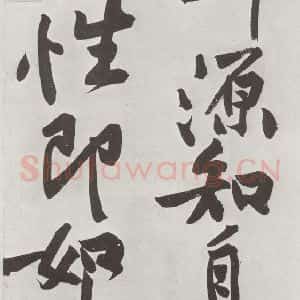 源知自
性即如
Shufawang.CN